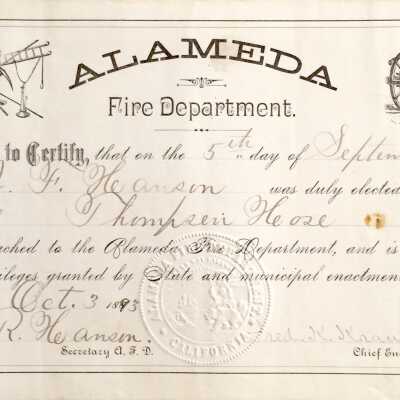 ALAMEDA
Fire Department.
to Certify, that on the 5th day of Septem
F. Heanson was duly elected
Thompsen Hose
ached to the Alameda Fire Department, and is
ileges granted by State and municipal enactmen
Oct. 3 1893
R. Heanson.
Secretary A. F. D.
Fred. K. Krau
Chief En
CALIFORNIA